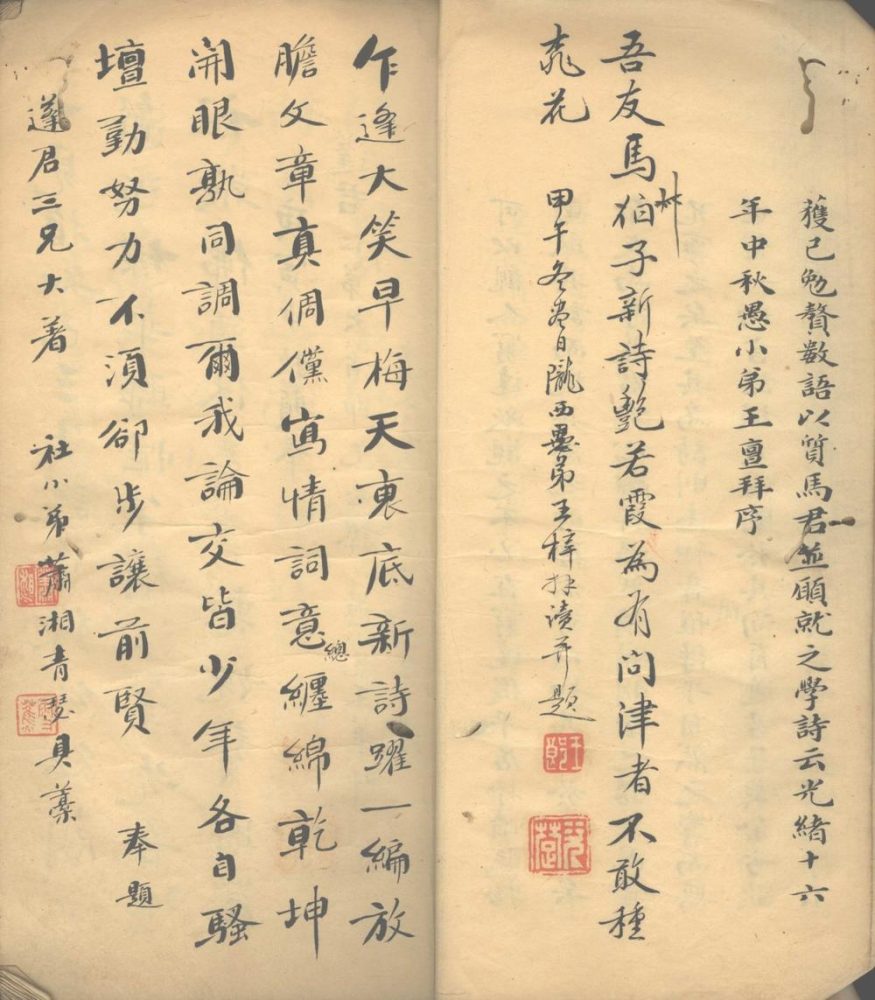 獲已勉贅數語以質馬君並願就之學詩云光緒十六
年中秋愚小弟王亶拜序
吾友馬伯子新詩艷若霞為有問津者不敢種
桃花
甲午冬杏日隴西愚弟王梓材讀并題
乍逢大笑早梅天裏底新詩躍一編放
膽文章真倜儻寫情詞意總纏綿乾坤
開眼孰同調爾我論交皆少年各自騷
壇勤努力不須卻步讓前賢 奉題
蓬君三兄大著 社小弟蕭湘青瑟具藁